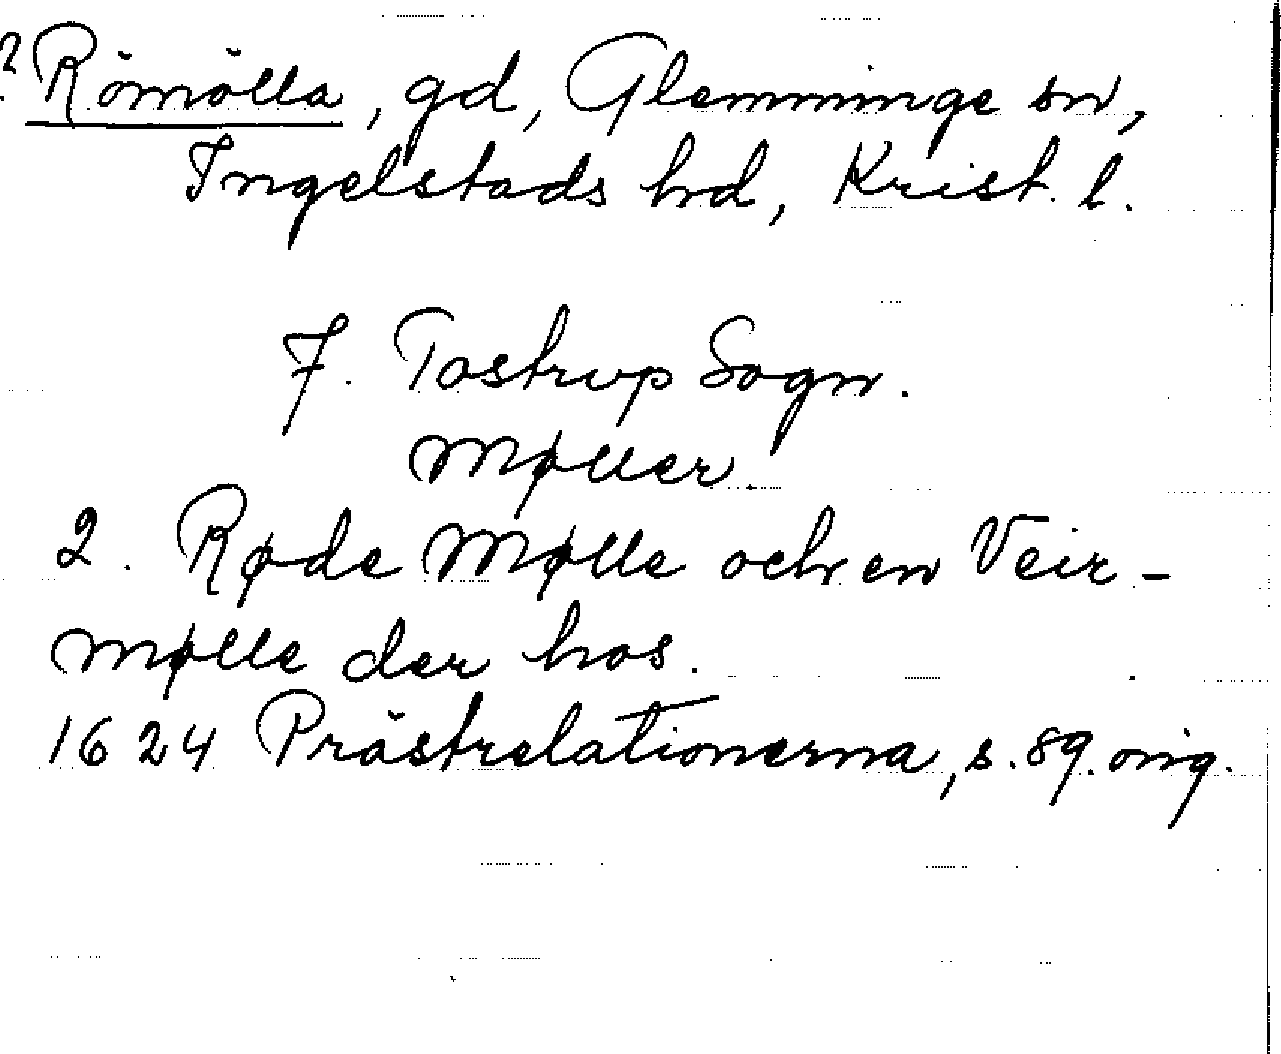 ? Römölla, gd, Glemminge sn,
Ingelstads hd, Krist. l.
7. Tostrup Sogn.
Møller.
2. Røde Mølle och en Veir-
mølle der hos.
1624 Prästrelationerna, s. 89. orig.